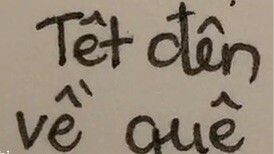 Têt đên
về quê